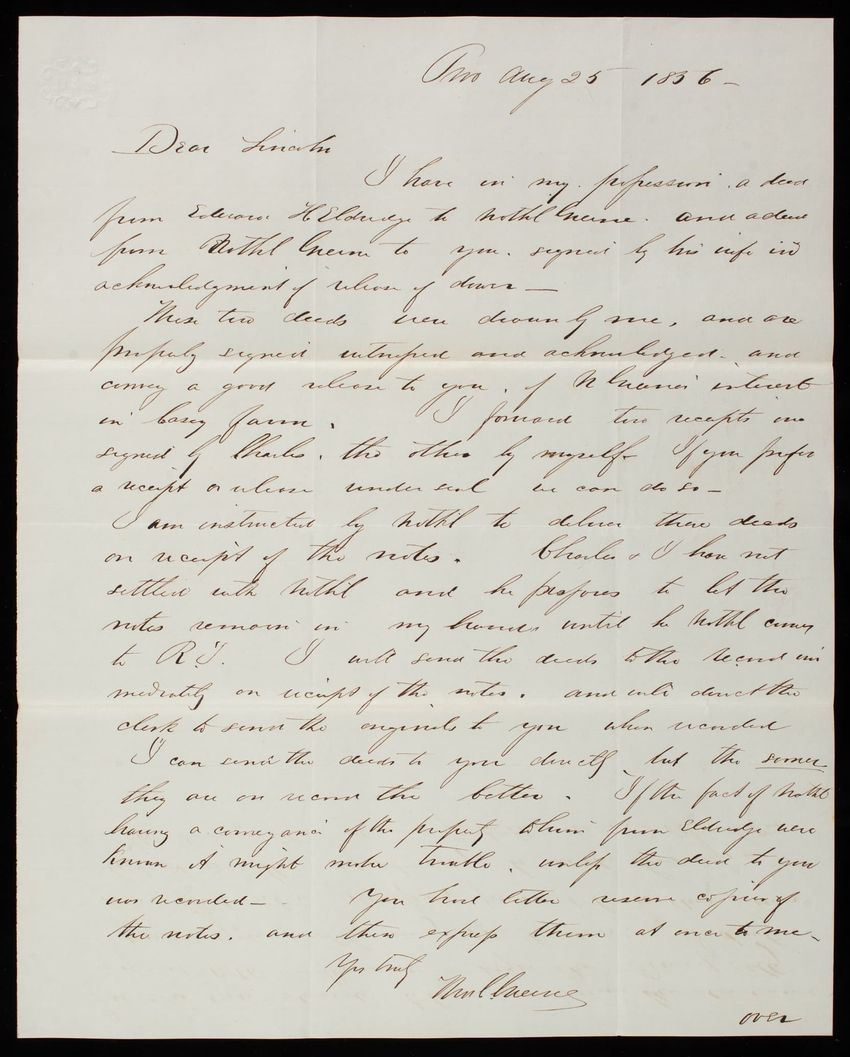 Pro Aug 25 1856 -
Dear Lincoln
I have in my possession a deed
from Edward H Eldredge to Nathl Greene. and a deed
from Nathl Greene to you. signed by his wife in
acknowledgment of release of dower —
These two deeds were drawn by me, and are
properly signed witnessed and acknowledged. and
convey a good release to you. of N Greene's interest
in Casey farm. I forward two receipts one
signed by Charles. the other by myself. If you prefer
a receipt or release under seal we can do so —
I am instructed by Nathl to deliver these deeds
on receipt of the notes. Charles & I have not
settled with Nathl and he proposes to let the
notes remain in my hands until he Nathl comes
to R I. I will send the deeds to the record im
mediately on receipt of the notes. and will direct the
clerk to send the originals to you when recorded
I can send the deeds to you directly but the sooner
they are on record the better. If the fact of Nathl
having a conveyance of the property to him from Eldredge were
known it might make trouble. unless the deed to you
was recorded — You had better reserve copies of
the notes. and then express them at once to me -
Yrs truly
Thos C Greene
over